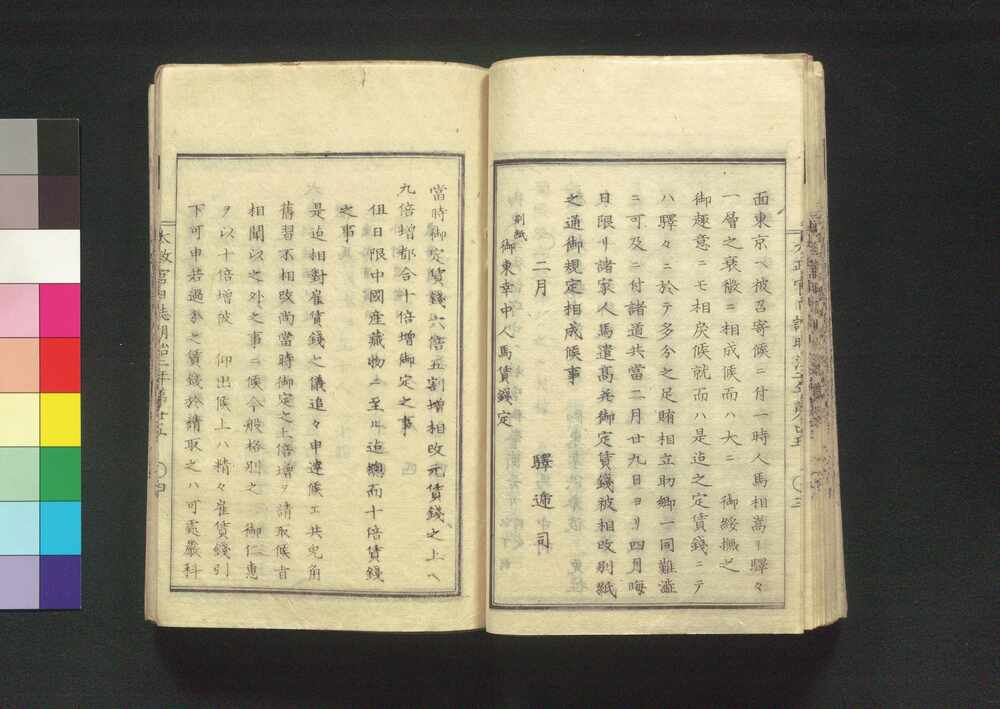 面東京ヘ被召寄候ニ付一時人馬相嵩ミ驛々
一層之衰微ニ相成候而ハ大ニ　御綏撫之
御趣意ニモ相戻候就而ハ是迄之定賃錢ニテ
ハ驛々ニ於テ多分之足賄相立助郷一同難澁
ニ可及ニ付諸道共當二月廿九日ヨリ四月晦
日限リ諸家人馬遣高并御定賃錢被相改別紙
之通御規定相成候事
二月　驛逓司
別紙
御東幸中人馬賃錢定
當時御定賃錢六倍五割増相改元賃錢之上ヘ
九倍増都合十倍増御定之事
但日限中國産藏物ニ至ル迄總而十倍賃錢
之事
是迄相對雇賃錢之儀追々申達候ヱ共兎角
舊習不相改尚當時御定之上倍増ヲ請取候者
相聞以之外之事ニ候今般格別之　御仁惠
ヲ以十倍増被　仰出候上ハ精々雇賃錢引
下可申若過分之賃錢於請取之ハ可處嚴科
太政官日誌明治二年第廿五　四